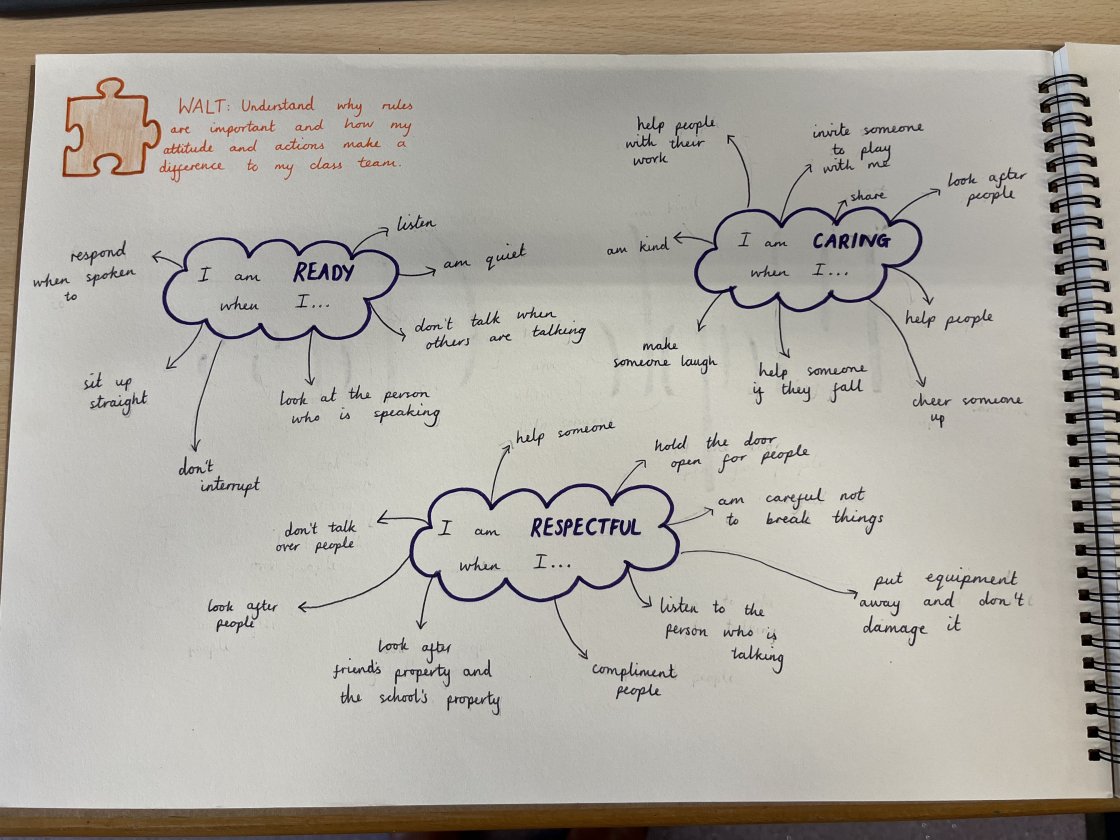 WALT: Understand why rules
are important and how my
attitude and actions make a
difference to my class team.
I am READY
when I...
listen
am quiet
don't talk when
others are talking
look at the person
who is speaking
don't
interrupt
sit up
straight
respond
when spoken
to
I am CARING
when I...
help people
with their
work
invite someone
to play
with me
share
look after
people
help people
cheer someone
up
help someone
if they fall
make
someone laugh
am kind
I am RESPECTFUL
when I...
help someone
hold the door
open for people
am careful not
to break things
put equipment
away and don't
damage it
listen to the
person who is
talking
compliment
people
look after
friends property and
the school's property
look after
people
don't talk
over people